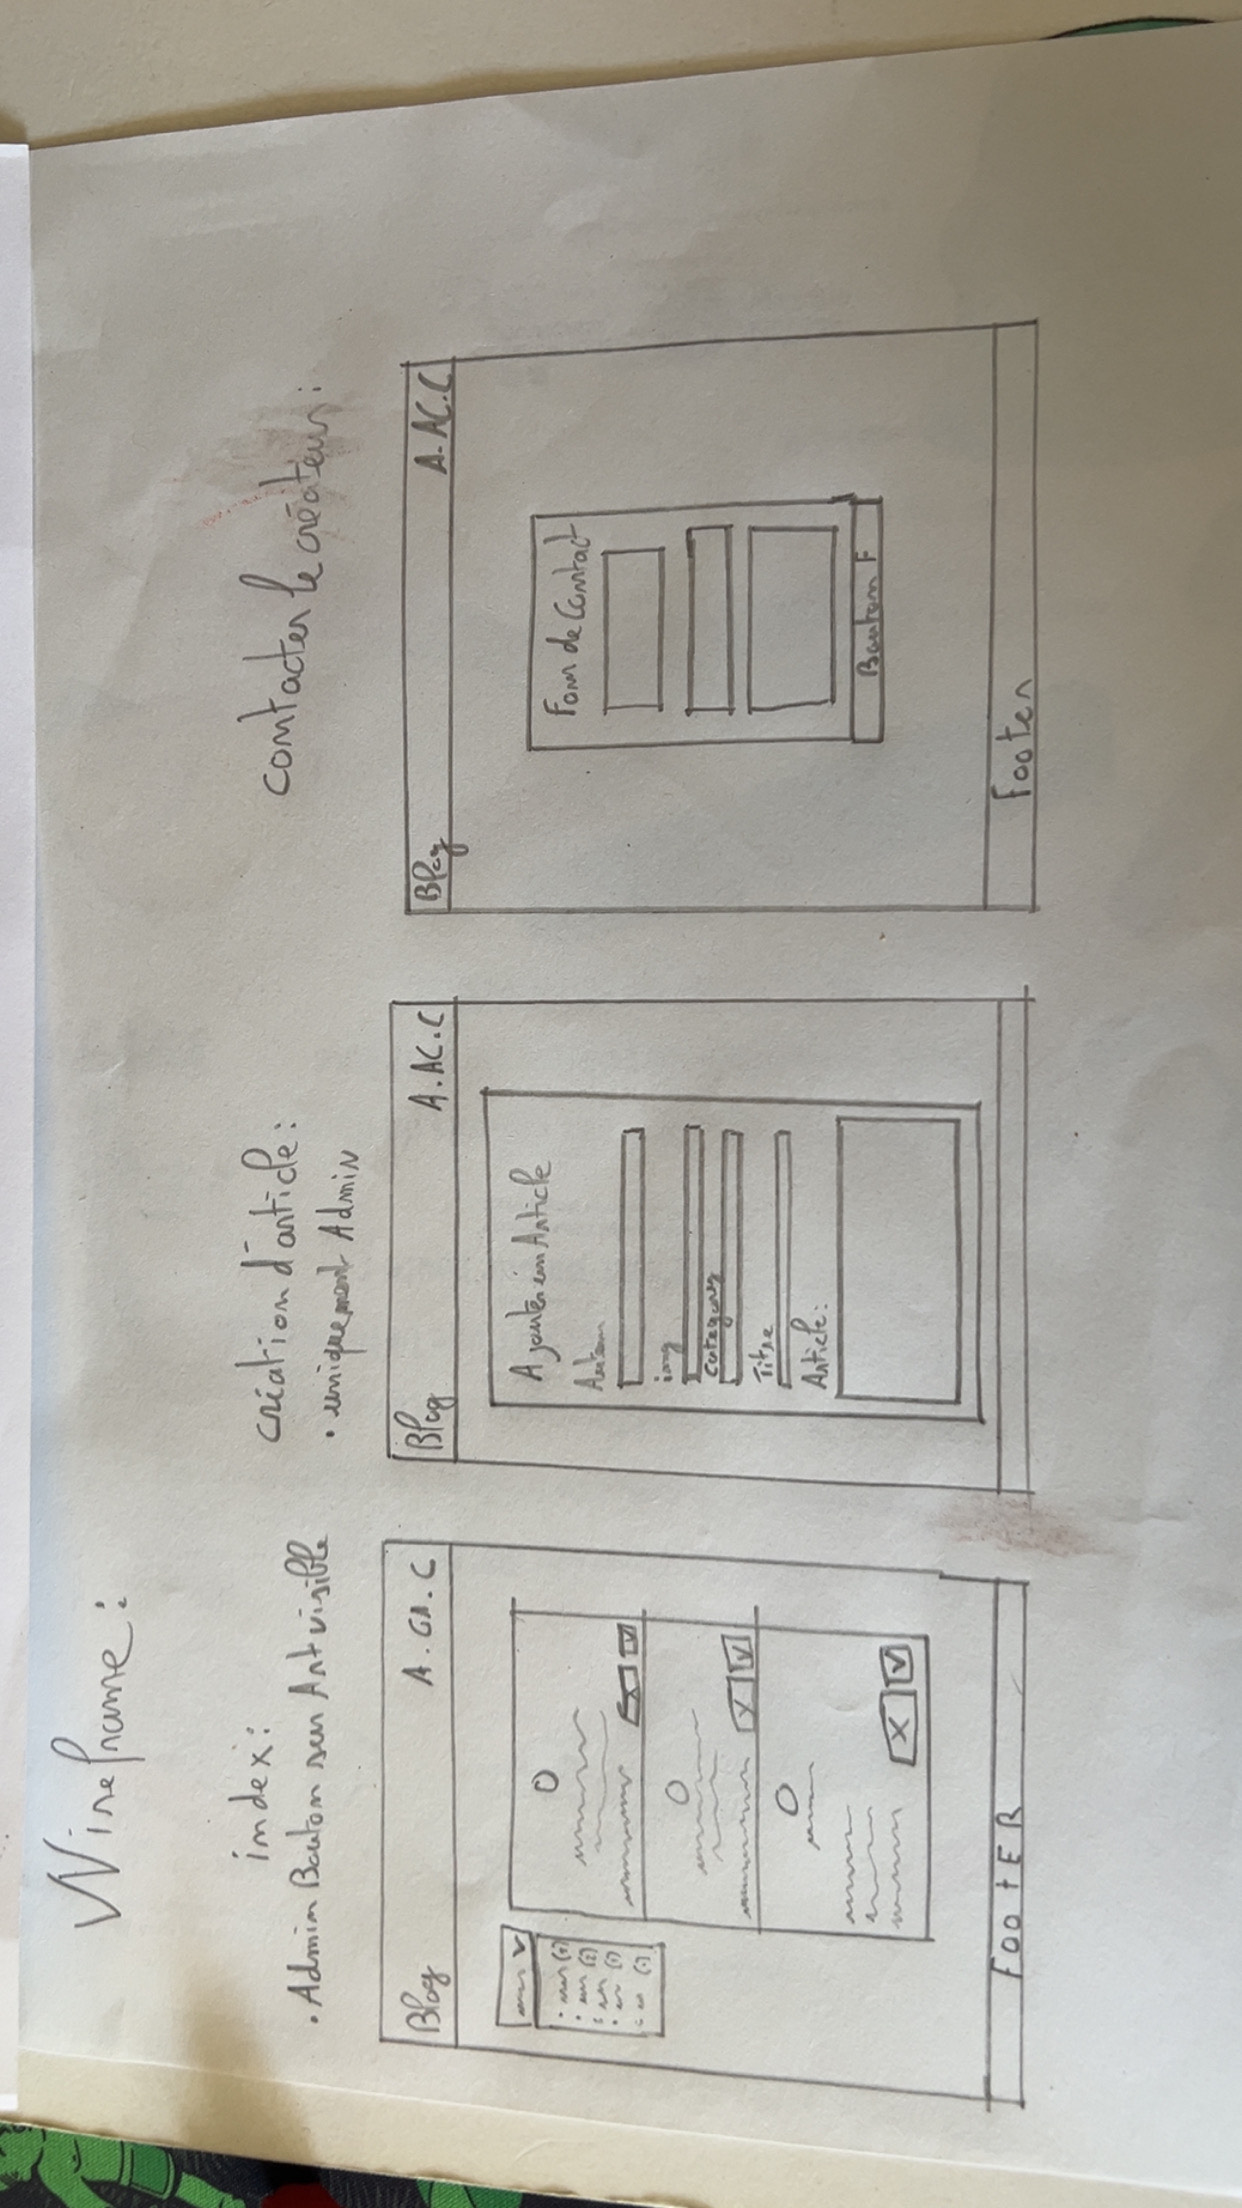 Wireframe:
index:
• Admin Bouton sur Art visible
Blog A. CA. C
FOOtER
création d'article:
• uniquement Admin
Blog A. AC. C
Ajouter un Article
Auteur
img
Category
Titre
Article:
contacter le créateur:
Blog A. AC. C
Form de Contact
Bouton F
Footer